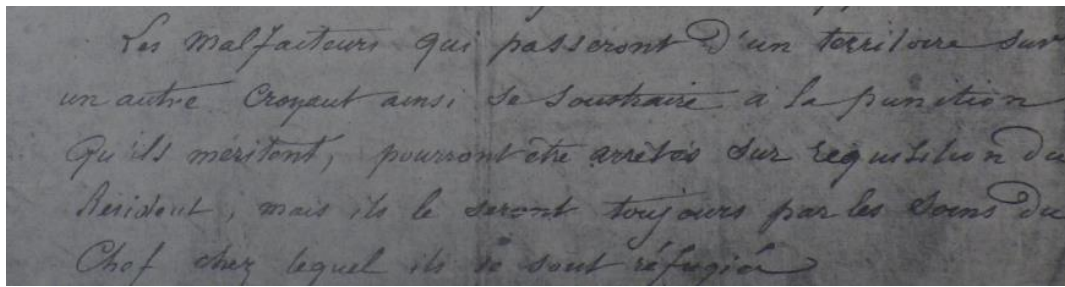 Les Malfaiteurs qui passeront d'un territoire sur
un autre Croyant ainsi se soustraire à la punition
Qu'ils méritent, pourront être arrêtés sur requisition du
Resident, mais ils le seront toujours par les soins du
Chef chez lequel ils se sont réfugiés